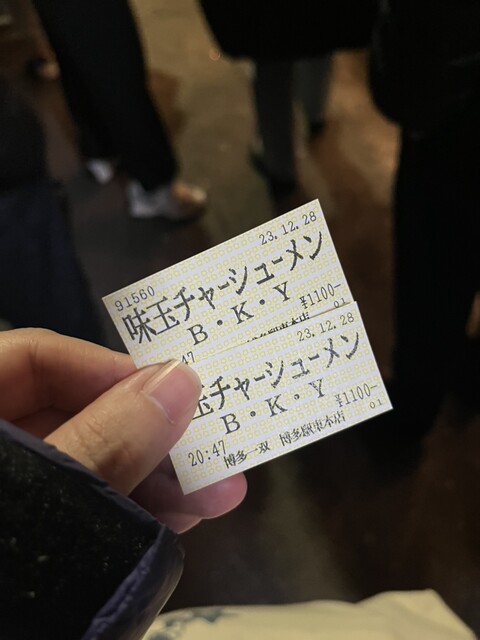 91560 23.12.28
味玉チャーシューメン
B・K・Y
¥1100-
47 01
23.12.28
玉チャーシューメン
B・K・Y
¥1100-
20:47 博多一双 博多駅東本店 01